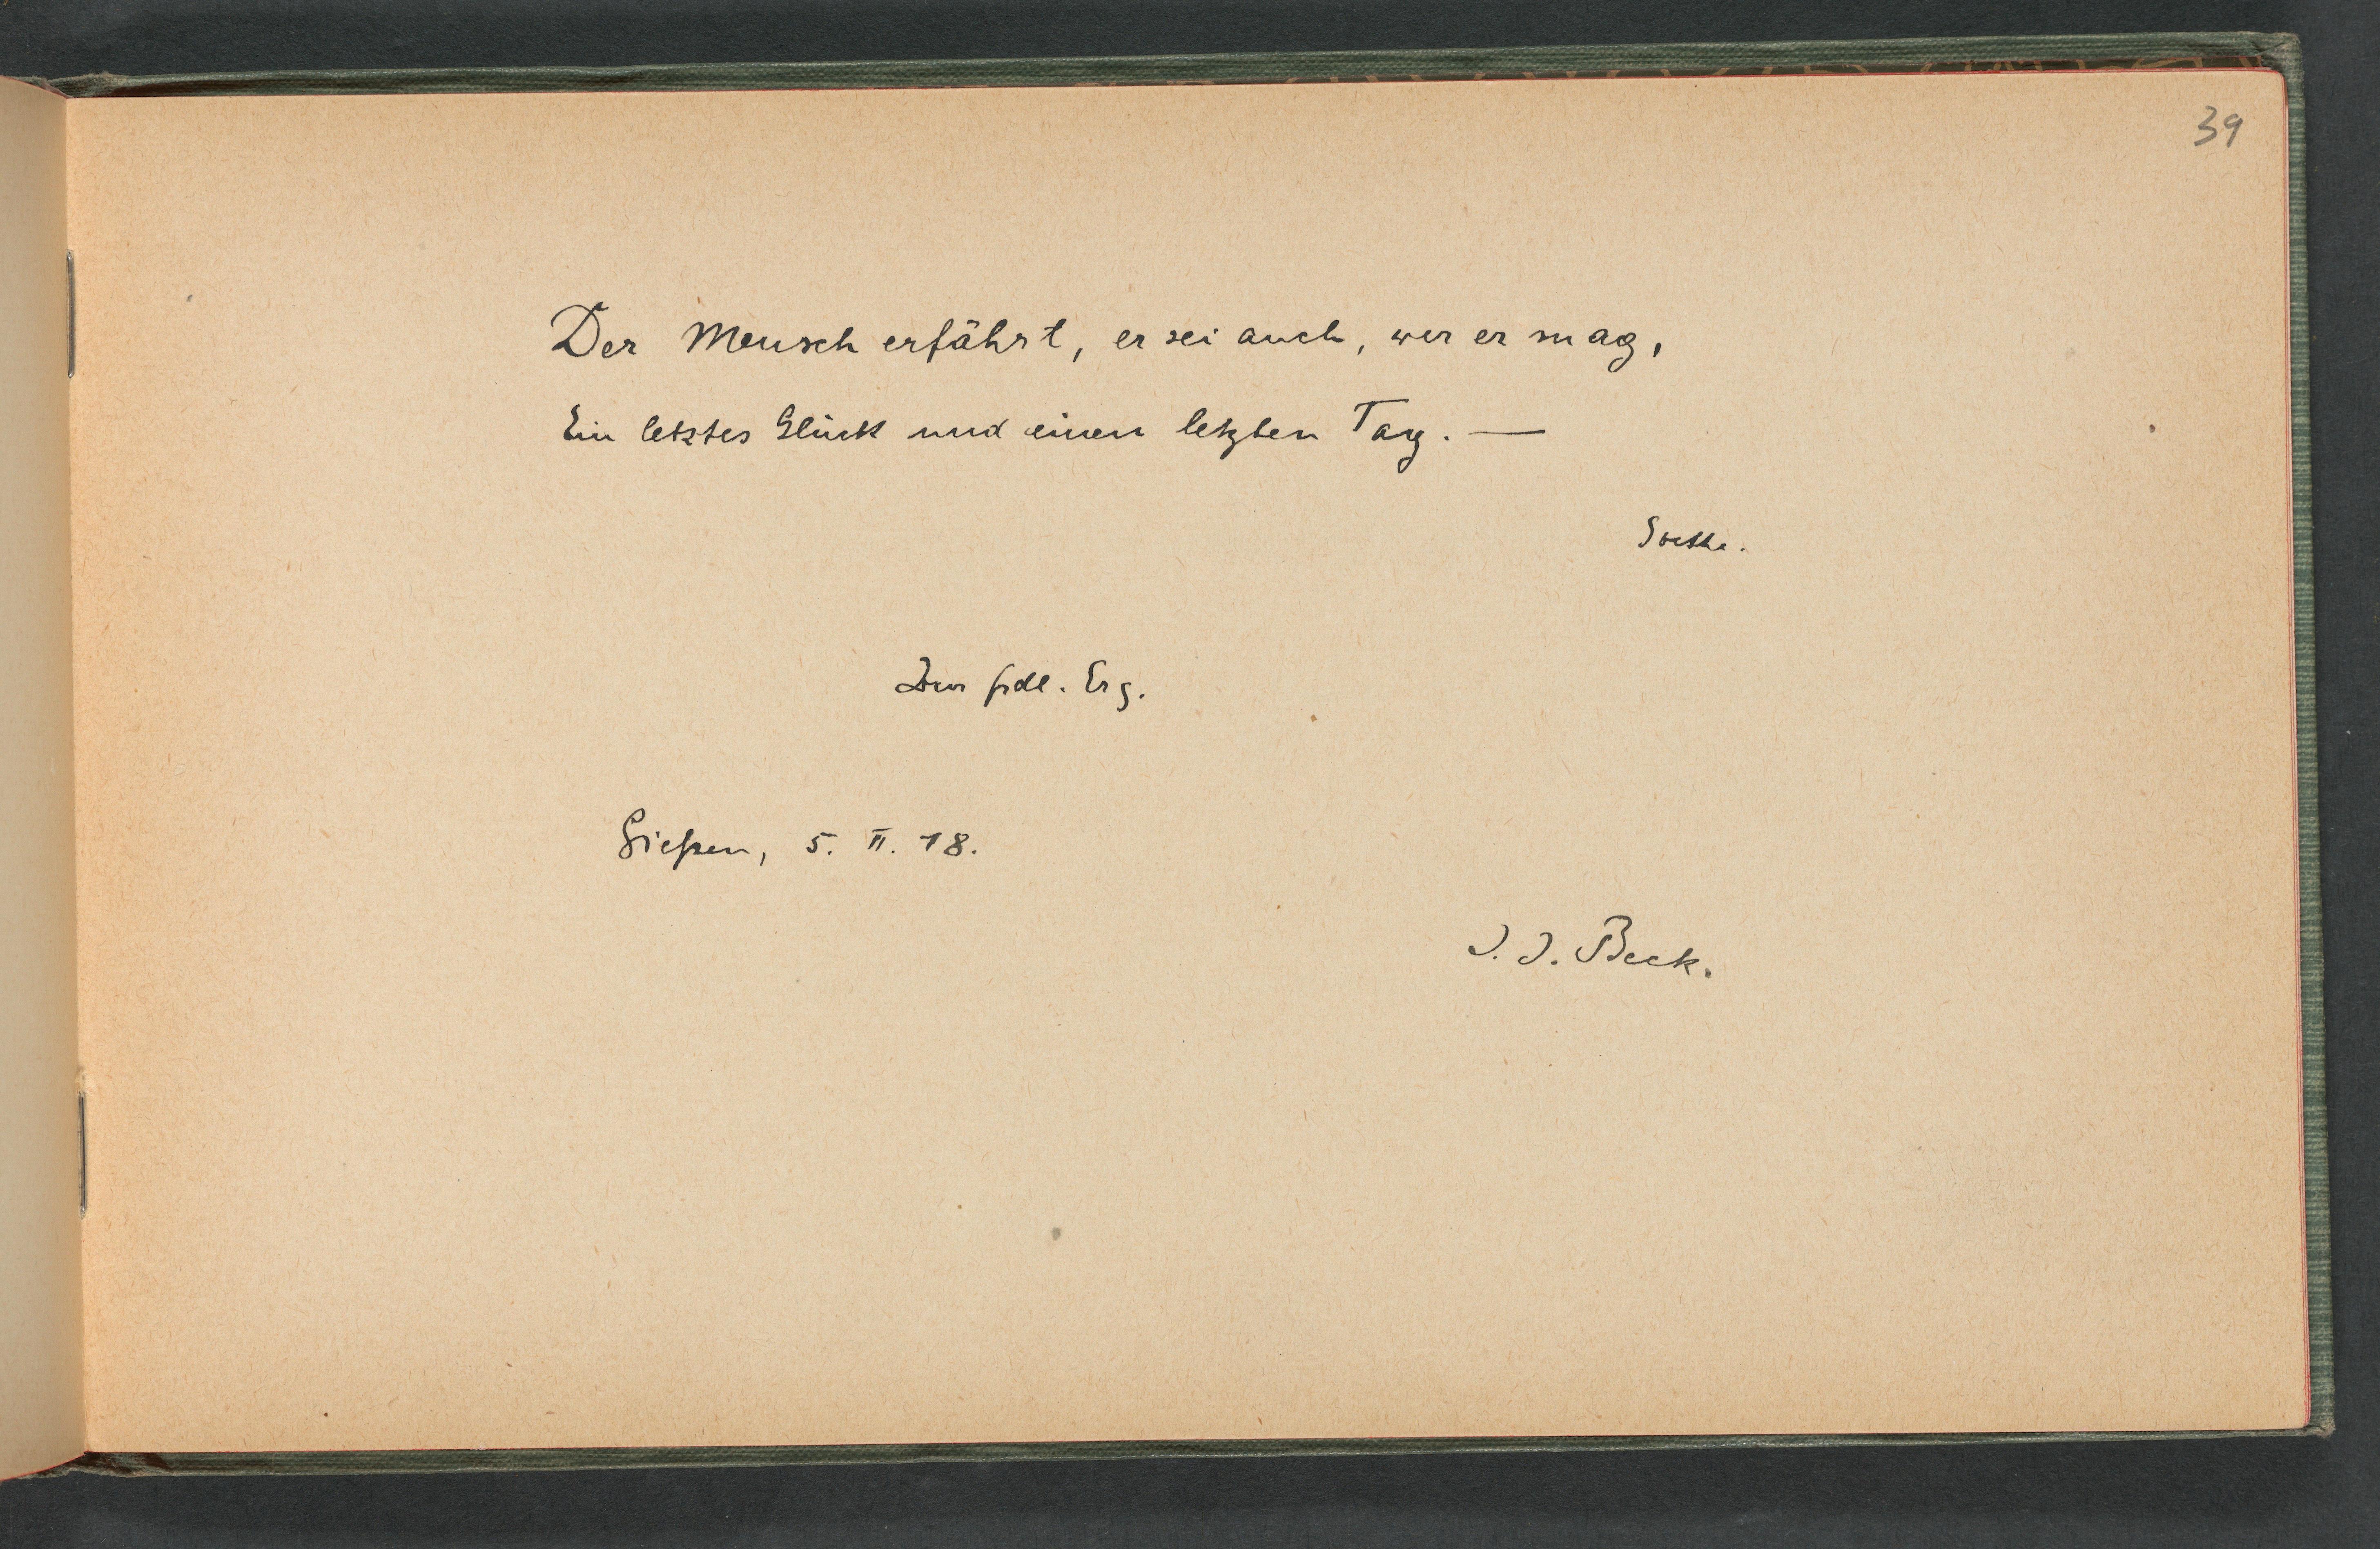 39
Der Mensch erfährt, er sei auch, wer er mag,
Ein letztes Glück und einen letzten Tag. —
Goethe.
Zur frdl. Erg.
Gießen, 5. II. 18.
J. J. Beck.